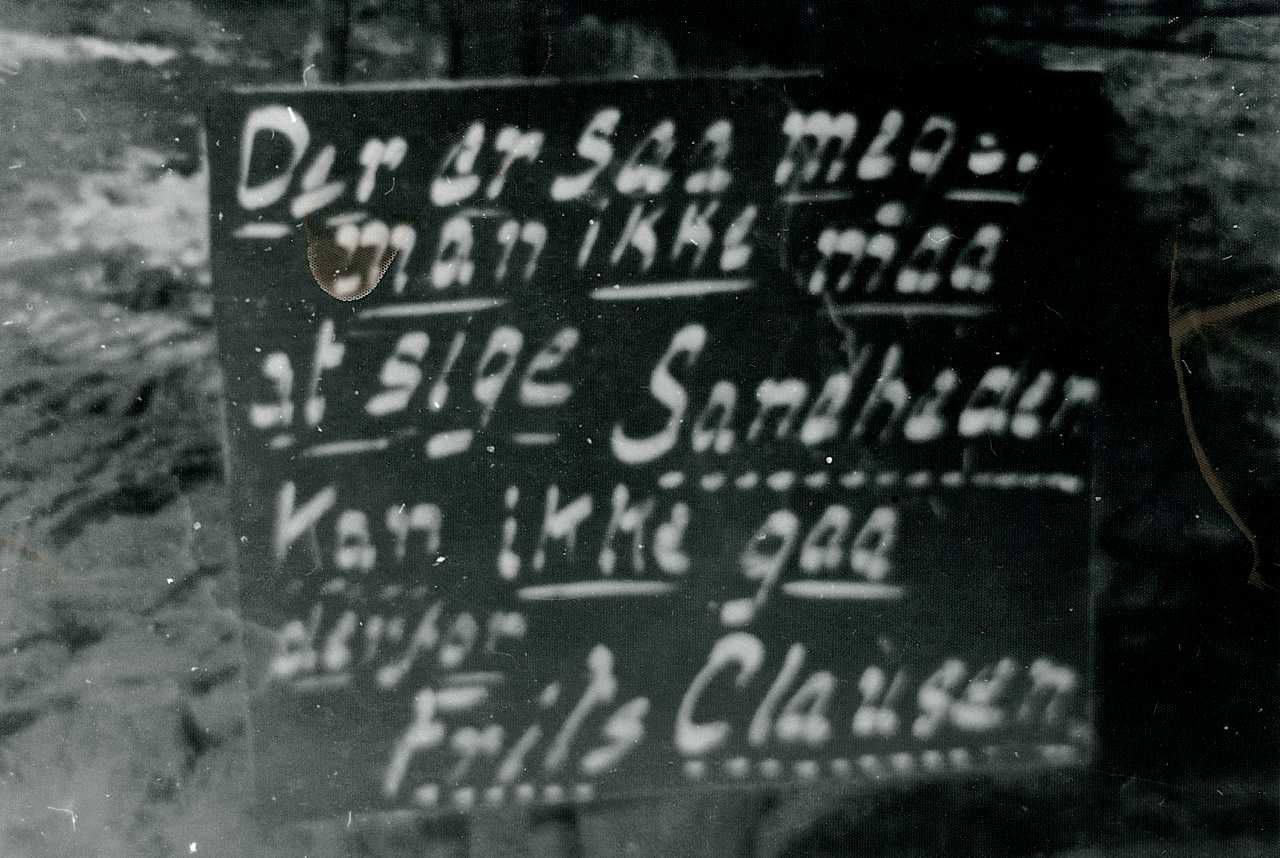 Der er saa meg..
man ikke maa
at sige Sandheden
Kan ikke gaa
derfor
Frits Clausen